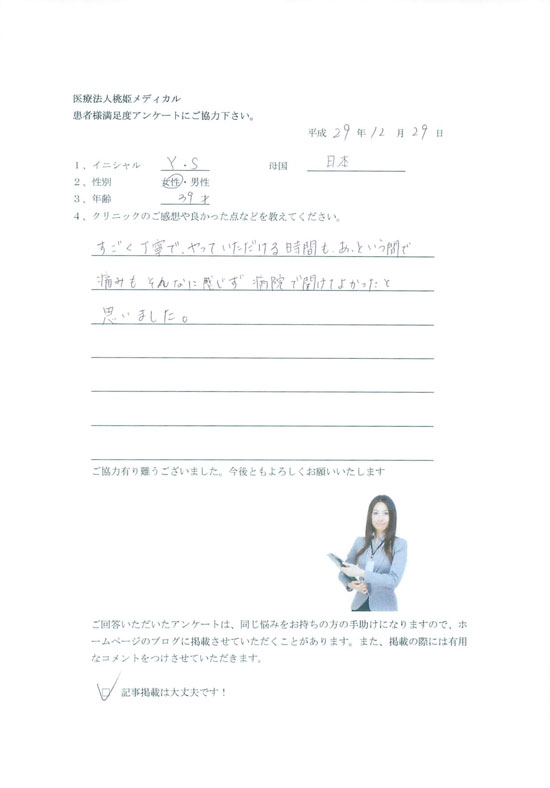 医療法人桃姫メディカル
患者様満足度アンケートにご協力下さい。
平成 29 年 12 月 29 日
1、イニシャル Y・S 母国 日本
2、性別 女性・男性
3、年齢 39才
4、クリニックのご感想や良かった点などを教えてください。
すごく丁寧で、やっていただける時間も、あっという間で
痛みもそんなに感じず 病院で開けてよかったと
思いました。
ご協力有り難うございました。今後ともよろしくお願いいたします
ご回答いただいたアンケートは、同じ悩みをお持ちの方の手助けになりますので、ホ
ームページのブログに掲載させていただくことがあります。また、掲載の際には有用
なコメントをつけさせていただきます。
記事掲載は大丈夫です！